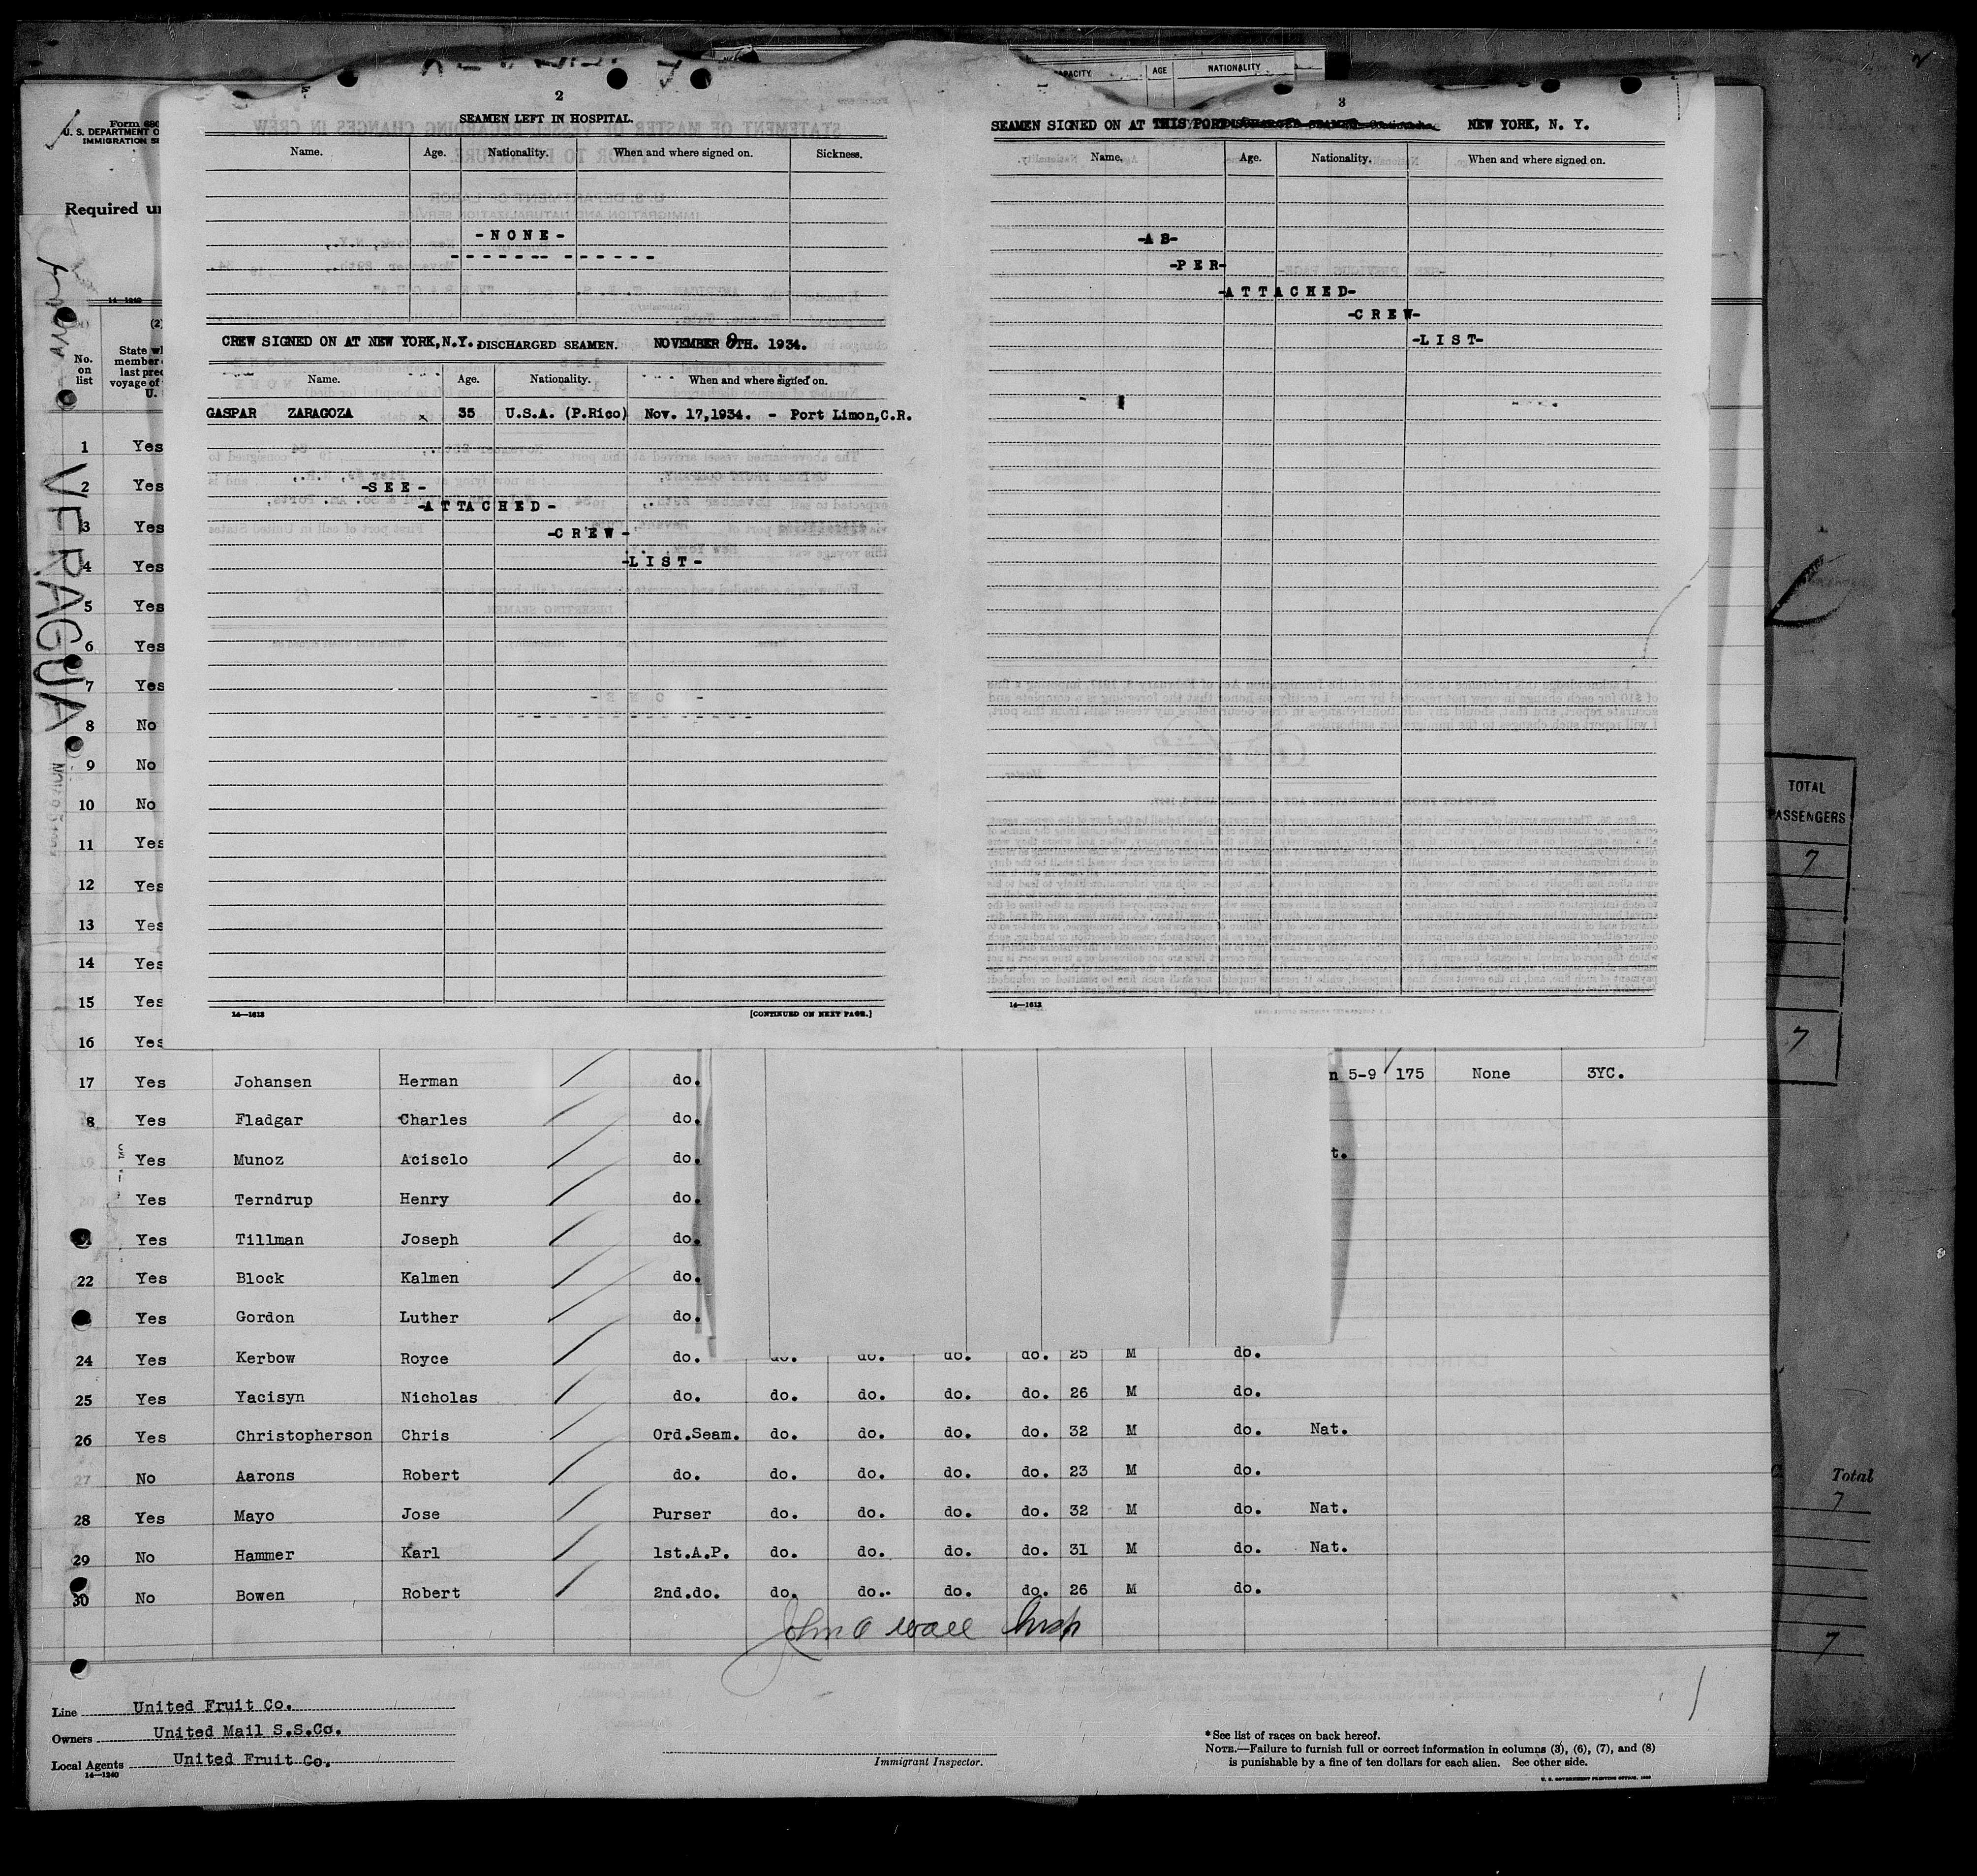 CAPACITY AGE NATIONALITY
2
SEAMEN LEFT IN HOSPITAL.
Name. Age. Nationality. When and where signed on. Sickness.
-NONE-
CREW SIGNED ON AT NEW YORK,N.Y. DISCHARGED SEAMEN. NOVEMBER 9TH. 1934.
Name. Age. Nationality. When and where signed on.
GASPAR ZARAGOZA x 35 U.S.A. (P.Rico) Nov. 17,1934. - Port Limon,C.R.
-SEE-
-ATTACHED-
-CREW-
-LIST-
14—1613 [CONTINUED ON NEXT PAGE.]
3
SEAMEN SIGNED ON AT THIS PORT NEW YORK, N. Y.
Name. Age. Nationality. When and where signed on.
-AS-
-PER-
-ATTACHED-
-CREW-
-LIST-
14—1613
Form 680
U. S. DEPARTMENT O
IMMIGRATION SE
Required un
14—1240
VERAGUA
(2)
No. on list
State wh
member
last prec
voyage of
U.
1 Yes
2 Yes
3 Yes
4 Yes
5 Yes
6 Yes
7 Yes
8 No
9 No
10 No
11 Yes
12 Yes
13 Yes
14 Yes
15 Yes
16 Yes
17 Yes Johansen Herman do. n 5-9 175 None 3YC.
8 Yes Fladgar Charles do.
19 Yes Munoz Acisclo do. t.
Yes Terndrup Henry do.
Yes Tillman Joseph do.
22 Yes Block Kalmen do.
Yes Gordon Luther do.
24 Yes Kerbow Royce do. do. do. do. do. 25 M do.
25 Yes Yacisyn Nicholas do. do. do. do. do. 26 M do.
26 Yes Christopherson Chris Ord.Seam. do. do. do. do. 32 M do. Nat.
27 No Aarons Robert do. do. do. do. do. 23 M do.
28 Yes Mayo Jose Purser do. do. do. do. 32 M do. Nat.
29 No Hammer Karl 1st.A.P. do. do. do. do. 31 M do. Nat.
30 No Bowen Robert 2nd.do. do. do.. do. do. 26 M do.
John O Wall
Line United Fruit Co.
Owners United Mail S.S.Co.
Local Agents United Fruit Co.
14—1240
Immigrant Inspector.
*See list of races on back hereof.
NOTE.—Failure to furnish full or correct information in columns (3), (6), (7), and (8)
is punishable by a fine of ten dollars for each alien. See other side.
U. S. GOVERNMENT PRINTING OFFICE.
TOTAL
PASSENGERS
7
7
Total
7
7